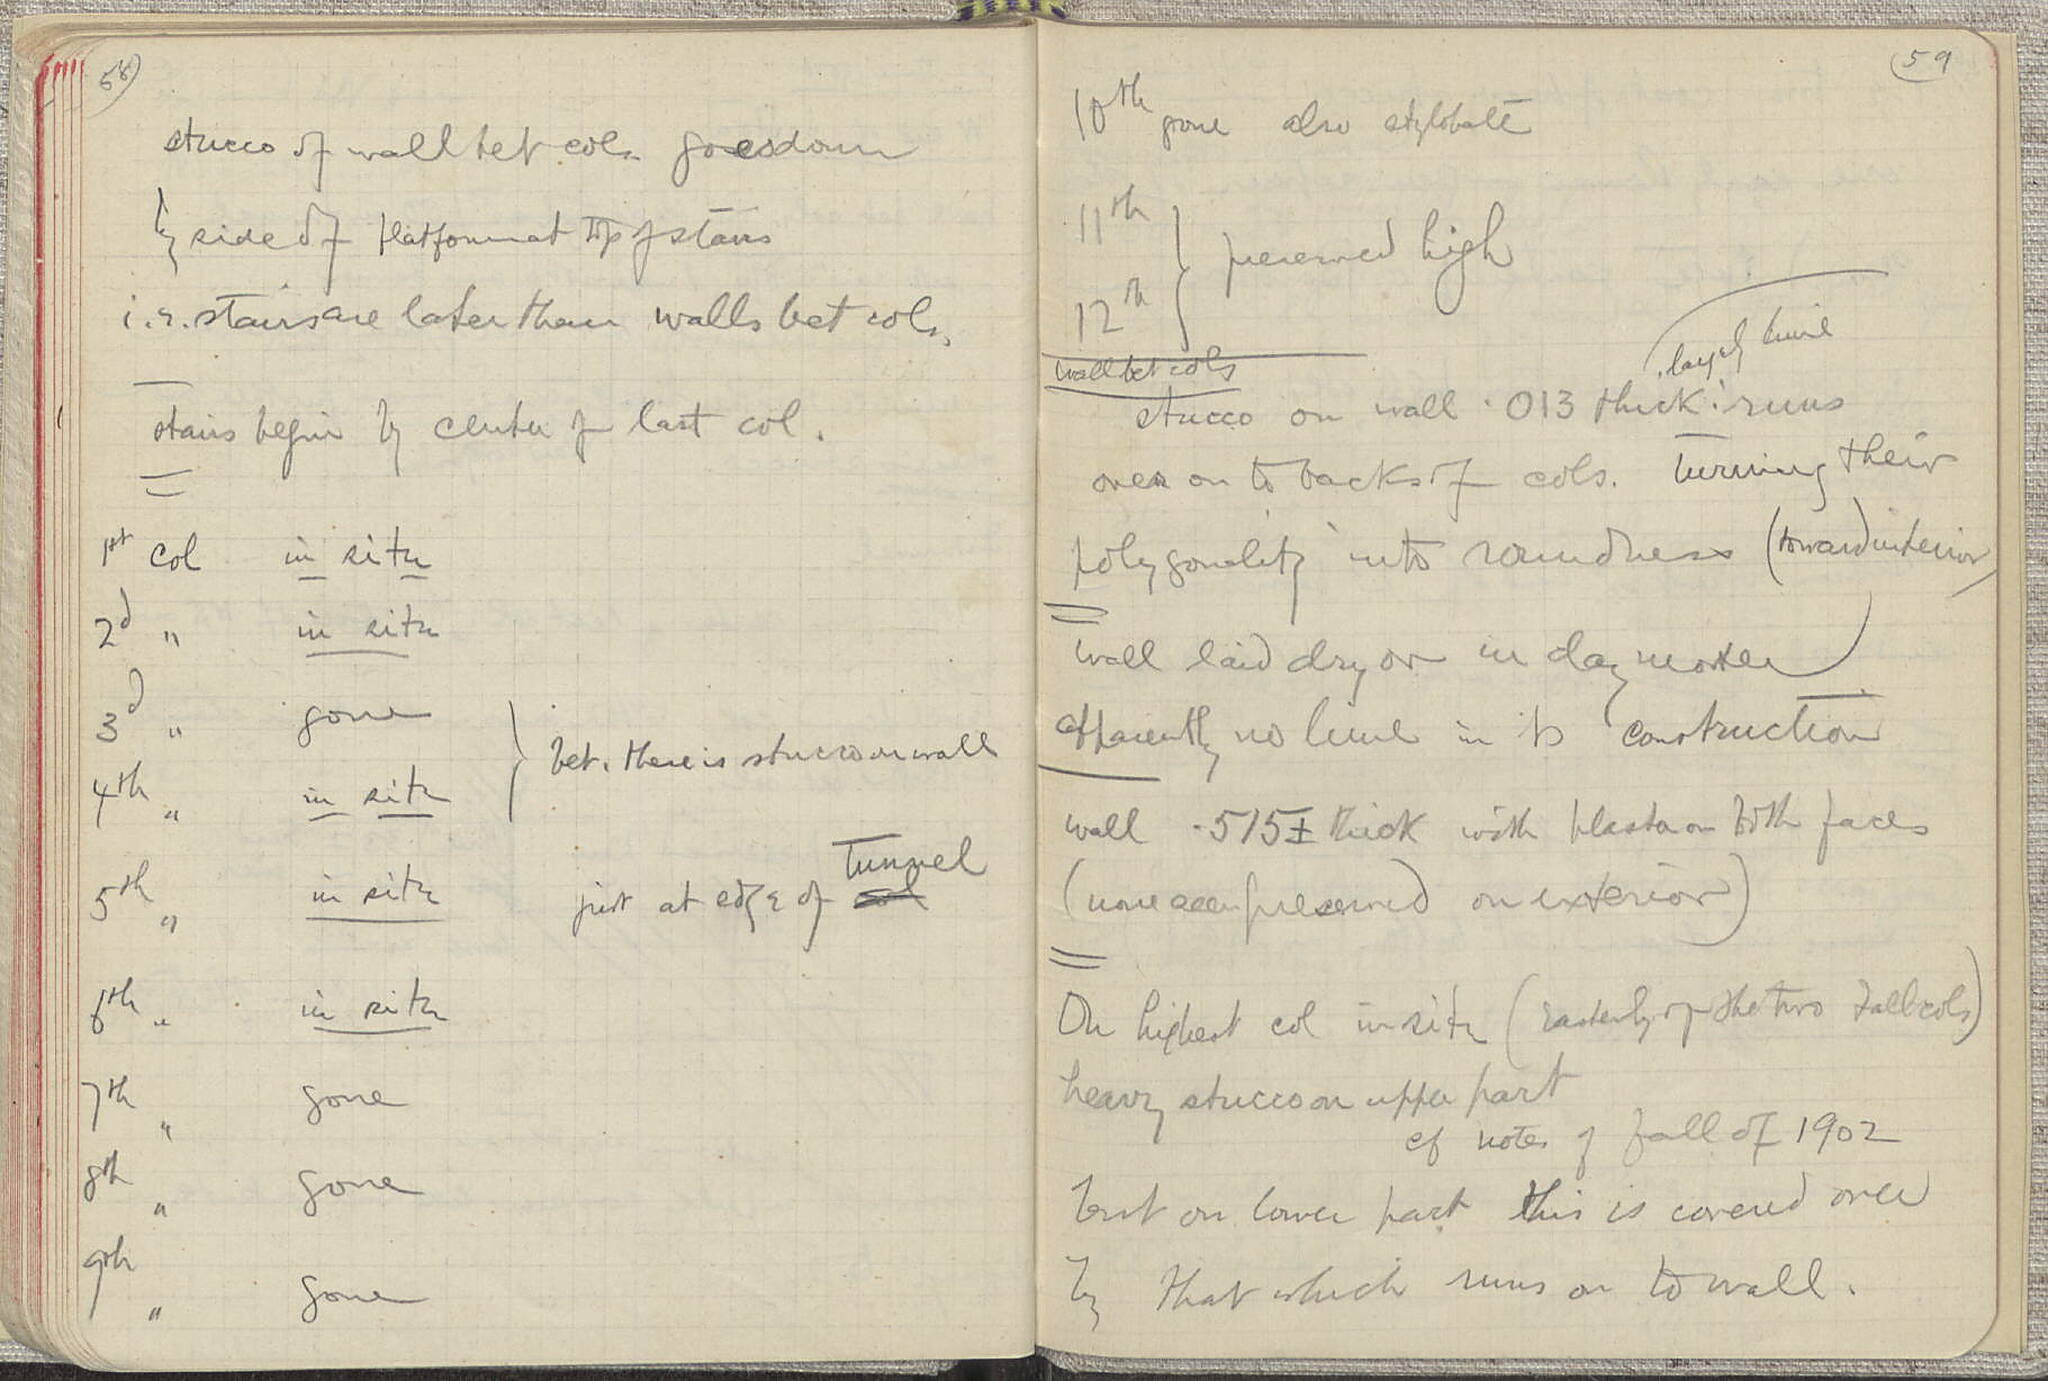 58)
stucco of wall bet cols. goes down
by side of platform at top of stairs
i.e. stairs are later than walls bet cols.
stairs begin by center of last col.
1st col in situ
2d " in situ
3d " gone
bet. there is stucco on wall
4th " in situ
5th " in situ just at edge of col tunnel
6th " in situ
7th " gone
8th " gone
9th " gone
(59
10th gone also stylobate
11th
12th } preserved high
wall bet cols
largely lime
stucco on wall .013 thick: runs
over on to backs of cols. turning their
polygonality into roundness (toward interior)
wall laid dry or in clay mortar)
apparently no lime in its construction
wall .515± thick with plaster on both faces
(none seen preserved on exterior)
On highest col in situ (easterly of the two tall cols)
heavy stucco on upper part
cf notes of fall of 1902
but on lower part this is covered over
by that which runs on to wall.